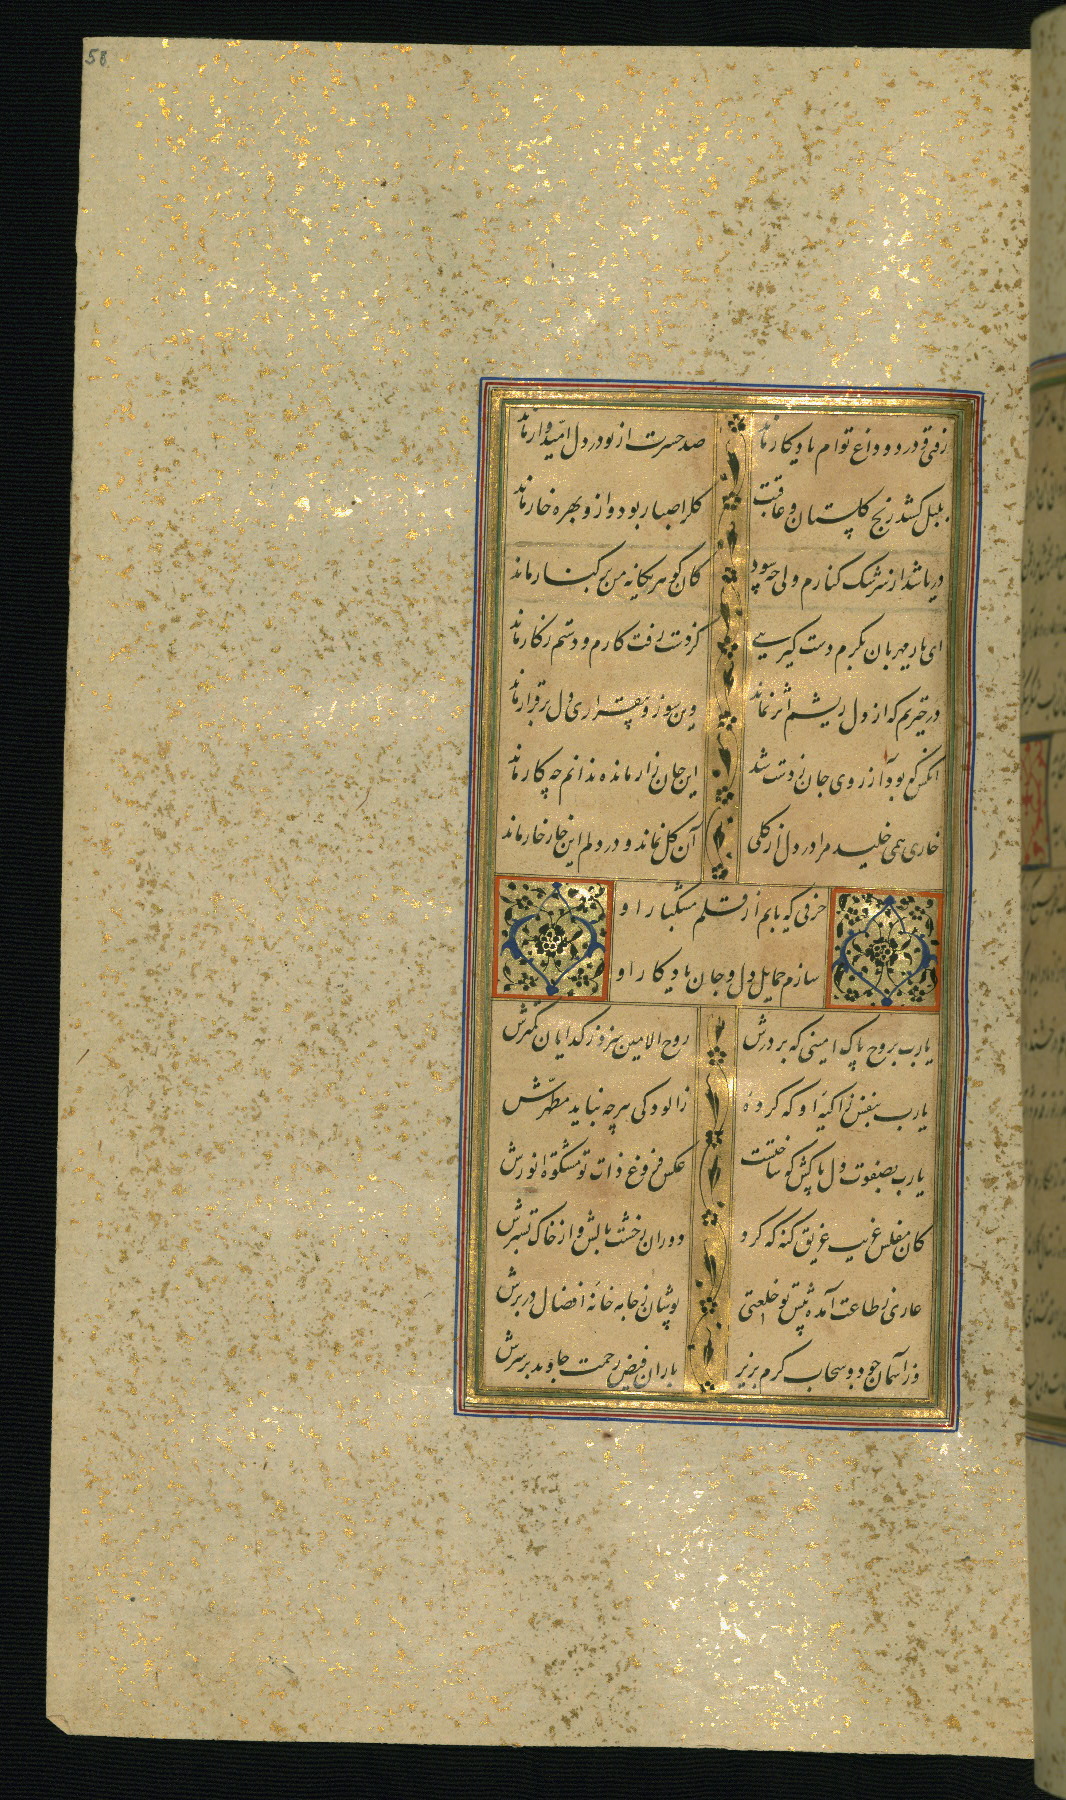 58
رفتی و درد و داغ توام یادکار ماند
صد حسرت از تو در دل امیدوار ماند
بلبل کشد رنج کلستان و عاقبت
کل را صبا ربود و ازو بهره خار ماند
دریا شد از سرشک کنارم ولی چه سود
کان کوهر یکانه من بر کنار ماند
ای یار مهربان بکرم دست کیریی
کز دست رفت کارم و دستم ز کار ماند
در حیرتم که از دل ریشم اثر نماند
وین سوز و بیقراری دل برقرار ماند
آنکس که بود آرزوی جان ز دست شد
این جان زار مانده ندانم چه کار ماند
خاری همی خلید مرا در دل از کلی
آن کل نماند و در دلم این خار خار ماند
حرفی که یابم از قلم مشکبار او
سازم حمایل دل و جان یادکار او
یارب بروح پاک امینی که بر درش
روح الامین بود ز کدایان کمترش
یارب بنفس زاکیه او که کرده
زالودکی هرچه نباید مطهرش
یارب بصفوت دل پاکش که ساختت
عکس فروغ ذات تو مشکوة انورش
کان مفلس غریب غریق کنه که کرد
دوران ز خشت بالش و از خاک بسترش
عاری ز طاعت آمده پیش تو خلعتی
پوشان ز جامه خانه افضال در برش
وز آسمان جود و سحاب کرم بریز
باران فیض رحمت جاوید بر سرش